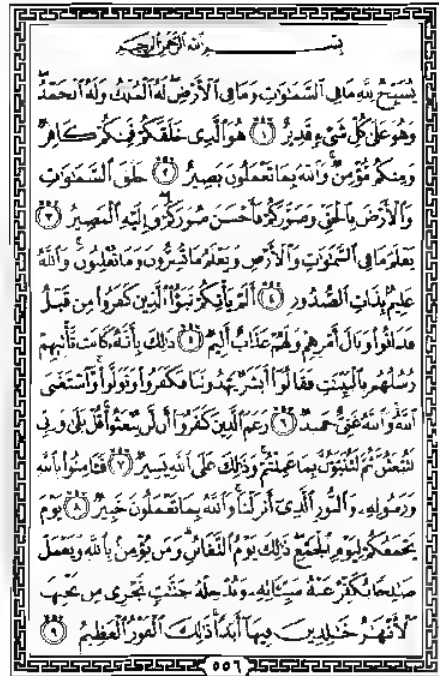 بِسْمِ اللَّهِ الرَّحْمَٰنِ الرَّحِيمِ
يُسَبِّحُ لِلَّهِ مَا فِي السَّمَٰوَٰتِ وَمَا فِي الْأَرْضِ ۖ لَهُ الْمُلْكُ وَلَهُ الْحَمْدُ ۖ
وَهُوَ عَلَىٰ كُلِّ شَيْءٍ قَدِيرٌ ﴿١﴾ هُوَ الَّذِي خَلَقَكُمْ فَمِنكُمْ كَافِرٌ
وَمِنكُم مُّؤْمِنٌ ۚ وَاللَّهُ بِمَا تَعْمَلُونَ بَصِيرٌ ﴿٢﴾ خَلَقَ السَّمَٰوَٰتِ
وَالْأَرْضَ بِالْحَقِّ وَصَوَّرَكُمْ فَأَحْسَنَ صُوَرَكُمْ ۖ وَإِلَيْهِ الْمَصِيرُ ﴿٣﴾
يَعْلَمُ مَا فِي السَّمَٰوَٰتِ وَالْأَرْضِ وَيَعْلَمُ مَا تُسِرُّونَ وَمَا تُعْلِنُونَ ۚ وَاللَّهُ
عَلِيمٌ بِذَاتِ الصُّدُورِ ﴿٤﴾ أَلَمْ يَأْتِكُمْ نَبَؤُا الَّذِينَ كَفَرُوا مِن قَبْلُ
فَذَاقُوا وَبَالَ أَمْرِهِمْ وَلَهُمْ عَذَابٌ أَلِيمٌ ﴿٥﴾ ذَٰلِكَ بِأَنَّهُ كَانَت تَّأْتِيهِمْ
رُسُلُهُم بِالْبَيِّنَٰتِ فَقَالُوا أَبَشَرٌ يَهْدُونَنَا فَكَفَرُوا وَتَوَلَّوا ۚ وَّاسْتَغْنَى
اللَّهُ ۚ وَاللَّهُ غَنِيٌّ حَمِيدٌ ﴿٦﴾ زَعَمَ الَّذِينَ كَفَرُوا أَن لَّن يُبْعَثُوا ۚ قُلْ بَلَىٰ وَرَبِّي
لَتُبْعَثُنَّ ثُمَّ لَتُنَبَّؤُنَّ بِمَا عَمِلْتُمْ ۚ وَذَٰلِكَ عَلَى اللَّهِ يَسِيرٌ ﴿٧﴾ فَـَٔامِنُوا بِاللَّهِ
وَرَسُولِهِ وَالنُّورِ الَّذِي أَنزَلْنَا ۚ وَاللَّهُ بِمَا تَعْمَلُونَ خَبِيرٌ ﴿٨﴾ يَوْمَ
يَجْمَعُكُمْ لِيَوْمِ الْجَمْعِ ۖ ذَٰلِكَ يَوْمُ التَّغَابُنِ ۗ وَمَن يُؤْمِن بِاللَّهِ وَيَعْمَلْ
صَٰلِحًا يُكَفِّرْ عَنْهُ سَيِّـَٔاتِهِ وَيُدْخِلْهُ جَنَّٰتٍ تَجْرِي مِن تَحْتِهَا
الْأَنْهَٰرُ خَٰلِدِينَ فِيهَا أَبَدًا ۚ ذَٰلِكَ الْفَوْزُ الْعَظِيمُ ﴿٩﴾
٥٥٦